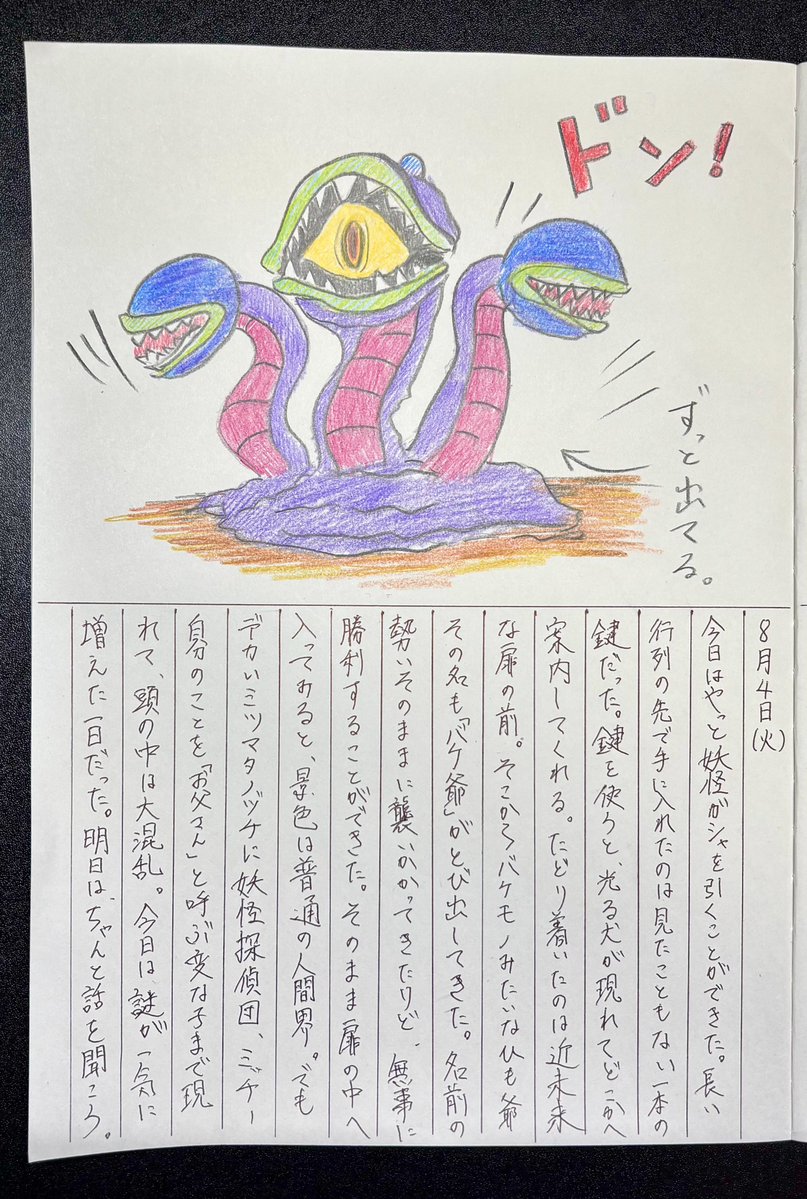 ドン!
ずっと出てる。
8月4日(火)
今日はやっと妖怪ガシャを引くことができた。長い
行列の先で手に入れたのは見たこともない一本の
鍵だった。鍵を使うと、光る犬が現れてどこかへ
案内してくれる。たどり着いたのは近未来
な扉の前。そこからバケモノみたいなひも爺
その名も「バケ爺」がとび出してきた。名前の
勢いそのままに襲いかかってきたけど、無事に
勝利することができた。そのまま扉の中へ
入ってみると、景色は普通の人間界。でも
デカいミツマタノヅチに妖怪探偵団、ミッチー
自分のことを「お父さん」と呼ぶ変な子まで現
れて、頭の中は大混乱。今日は、謎が一気に
増えた一日だった。明日は、ちゃんと話を聞こう。